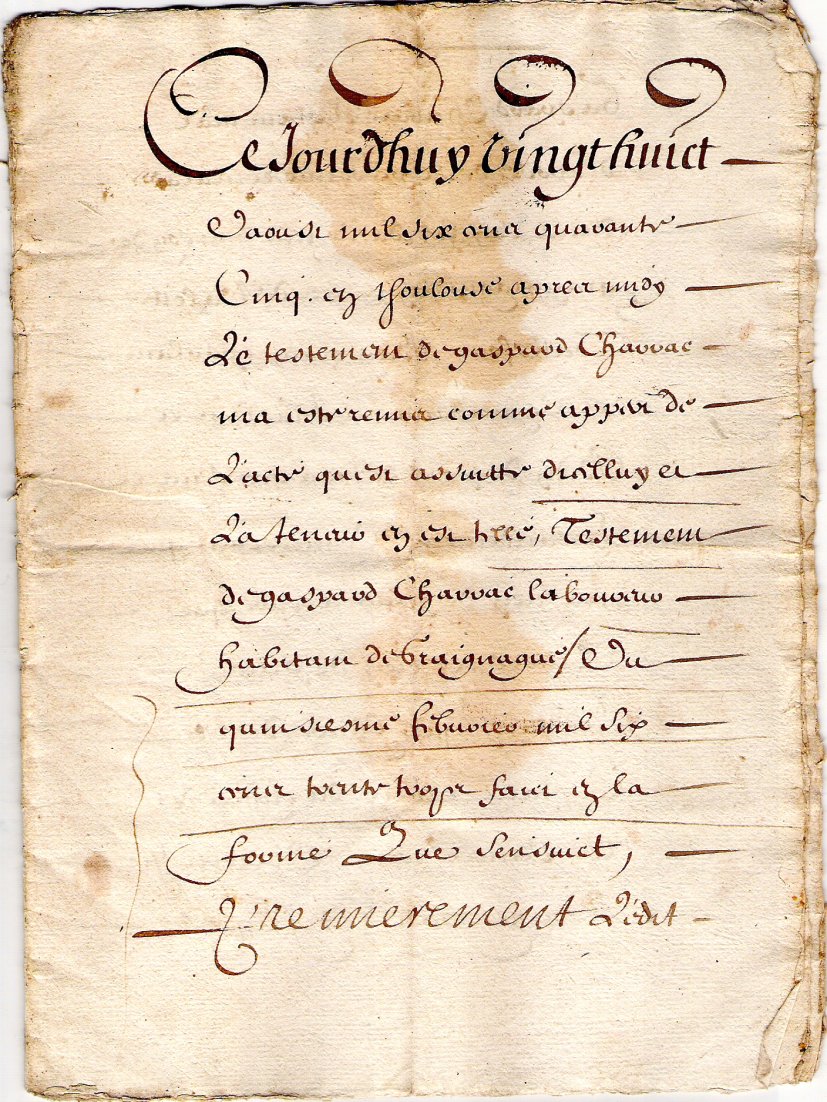 Ce Jourdhuy vingt huict
Daoust mil six cens quarante
Cinq. en thoulouse apres midy
Le testement de gaspard Charrac
ma este remis comme appert de
Lacte quest assuitte dicelluy et
La teneur en est telle, Testement
de gaspard Charrac laboureur
habitant de Graignague / Du
quinsiesme febvrier mil six
cens trente troys faict en la
forme Que sensuict,
Premierement Ledit